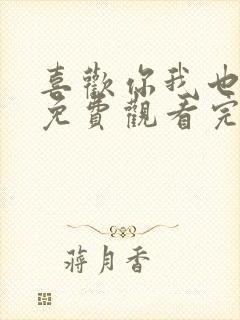 喜歡你我也
免費觀看完
蔣月香